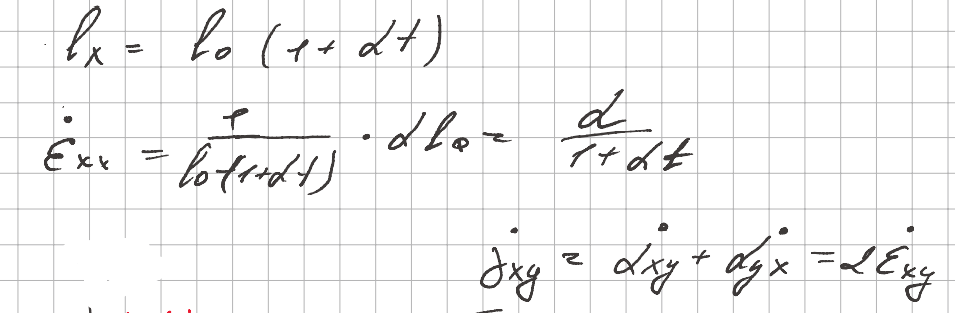 lx = l₀ (1 + αt)
ε̇xx = 1 / l₀(1+αt) · αl₀ = α / 1+αt
γ̇xy = α̇xy + α̇yx = 2ε̇xy